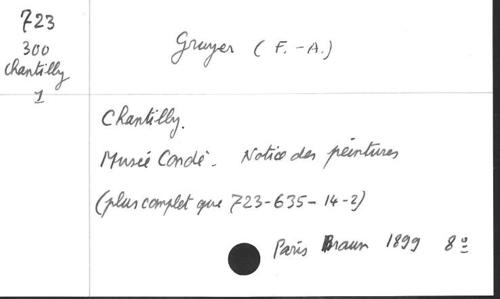 723
300
Chantilly
1
Gruyer (F.-A.)
Chantilly.
Musée Condé. Notice des peintures
(plus complet que 723-635-14-2)
Paris Braun 1899 8º